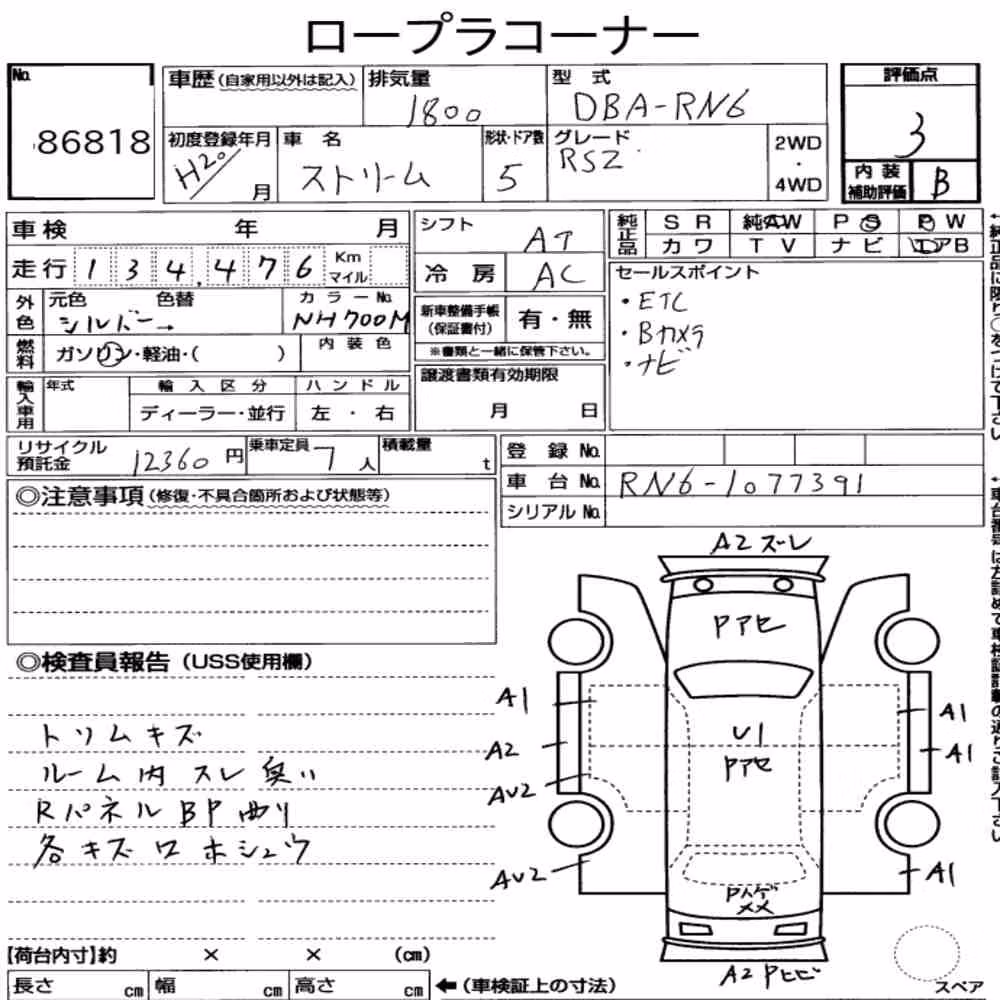 ロープラコーナー
No.
86818
車歴(自家用以外は記入)
排気量
1800
型式
DBA-RN6
評価点
3
初度登録年月
H20
月
車名
ストリーム
形状・ドア数
5
グレード
RSZ
2WD
・
4WD
内装
補助評価
B
車検 年 月
走行 134,476 Km
マイル
シフト
AT
冷房
AC
純正品
SR 純AW PS PW
カワ TV ナビ エアB
セールスポイント
・ETC
・Bカメラ
・ナビ
外色
元色 色替
シルバー→
カラーNo.
NH700M
燃料
ガソリン・軽油・( )
内装色
新車整備手帳
(保証書付)
有・無
※書類と一緒に保管下さい。
譲渡書類有効期限
月 日
輸入車用
年式
輸入区分
ディーラー・並行
ハンドル
左・右
リサイクル
預託金
12360 円
乗車定員
7人
積載量
t
登録No.
車台No. RN6-1077391
シリアルNo.
◎注意事項(修復・不具合箇所および状態等)
◎検査員報告(USS使用欄)
トリムキズ
ルーム内 スレ 臭い
Rパネル BP曲り
各キズワホシュウ
A2 ズーレ
Pアセ
A1
U1
Pアセ
A1
A2
A1
AU2
AU2
A1
Pハゲ
××
A2 Pヒビ
【荷台内寸】約 × × (cm)
長さ cm 幅 cm 高さ cm
←(車検証上の寸法)
スペア